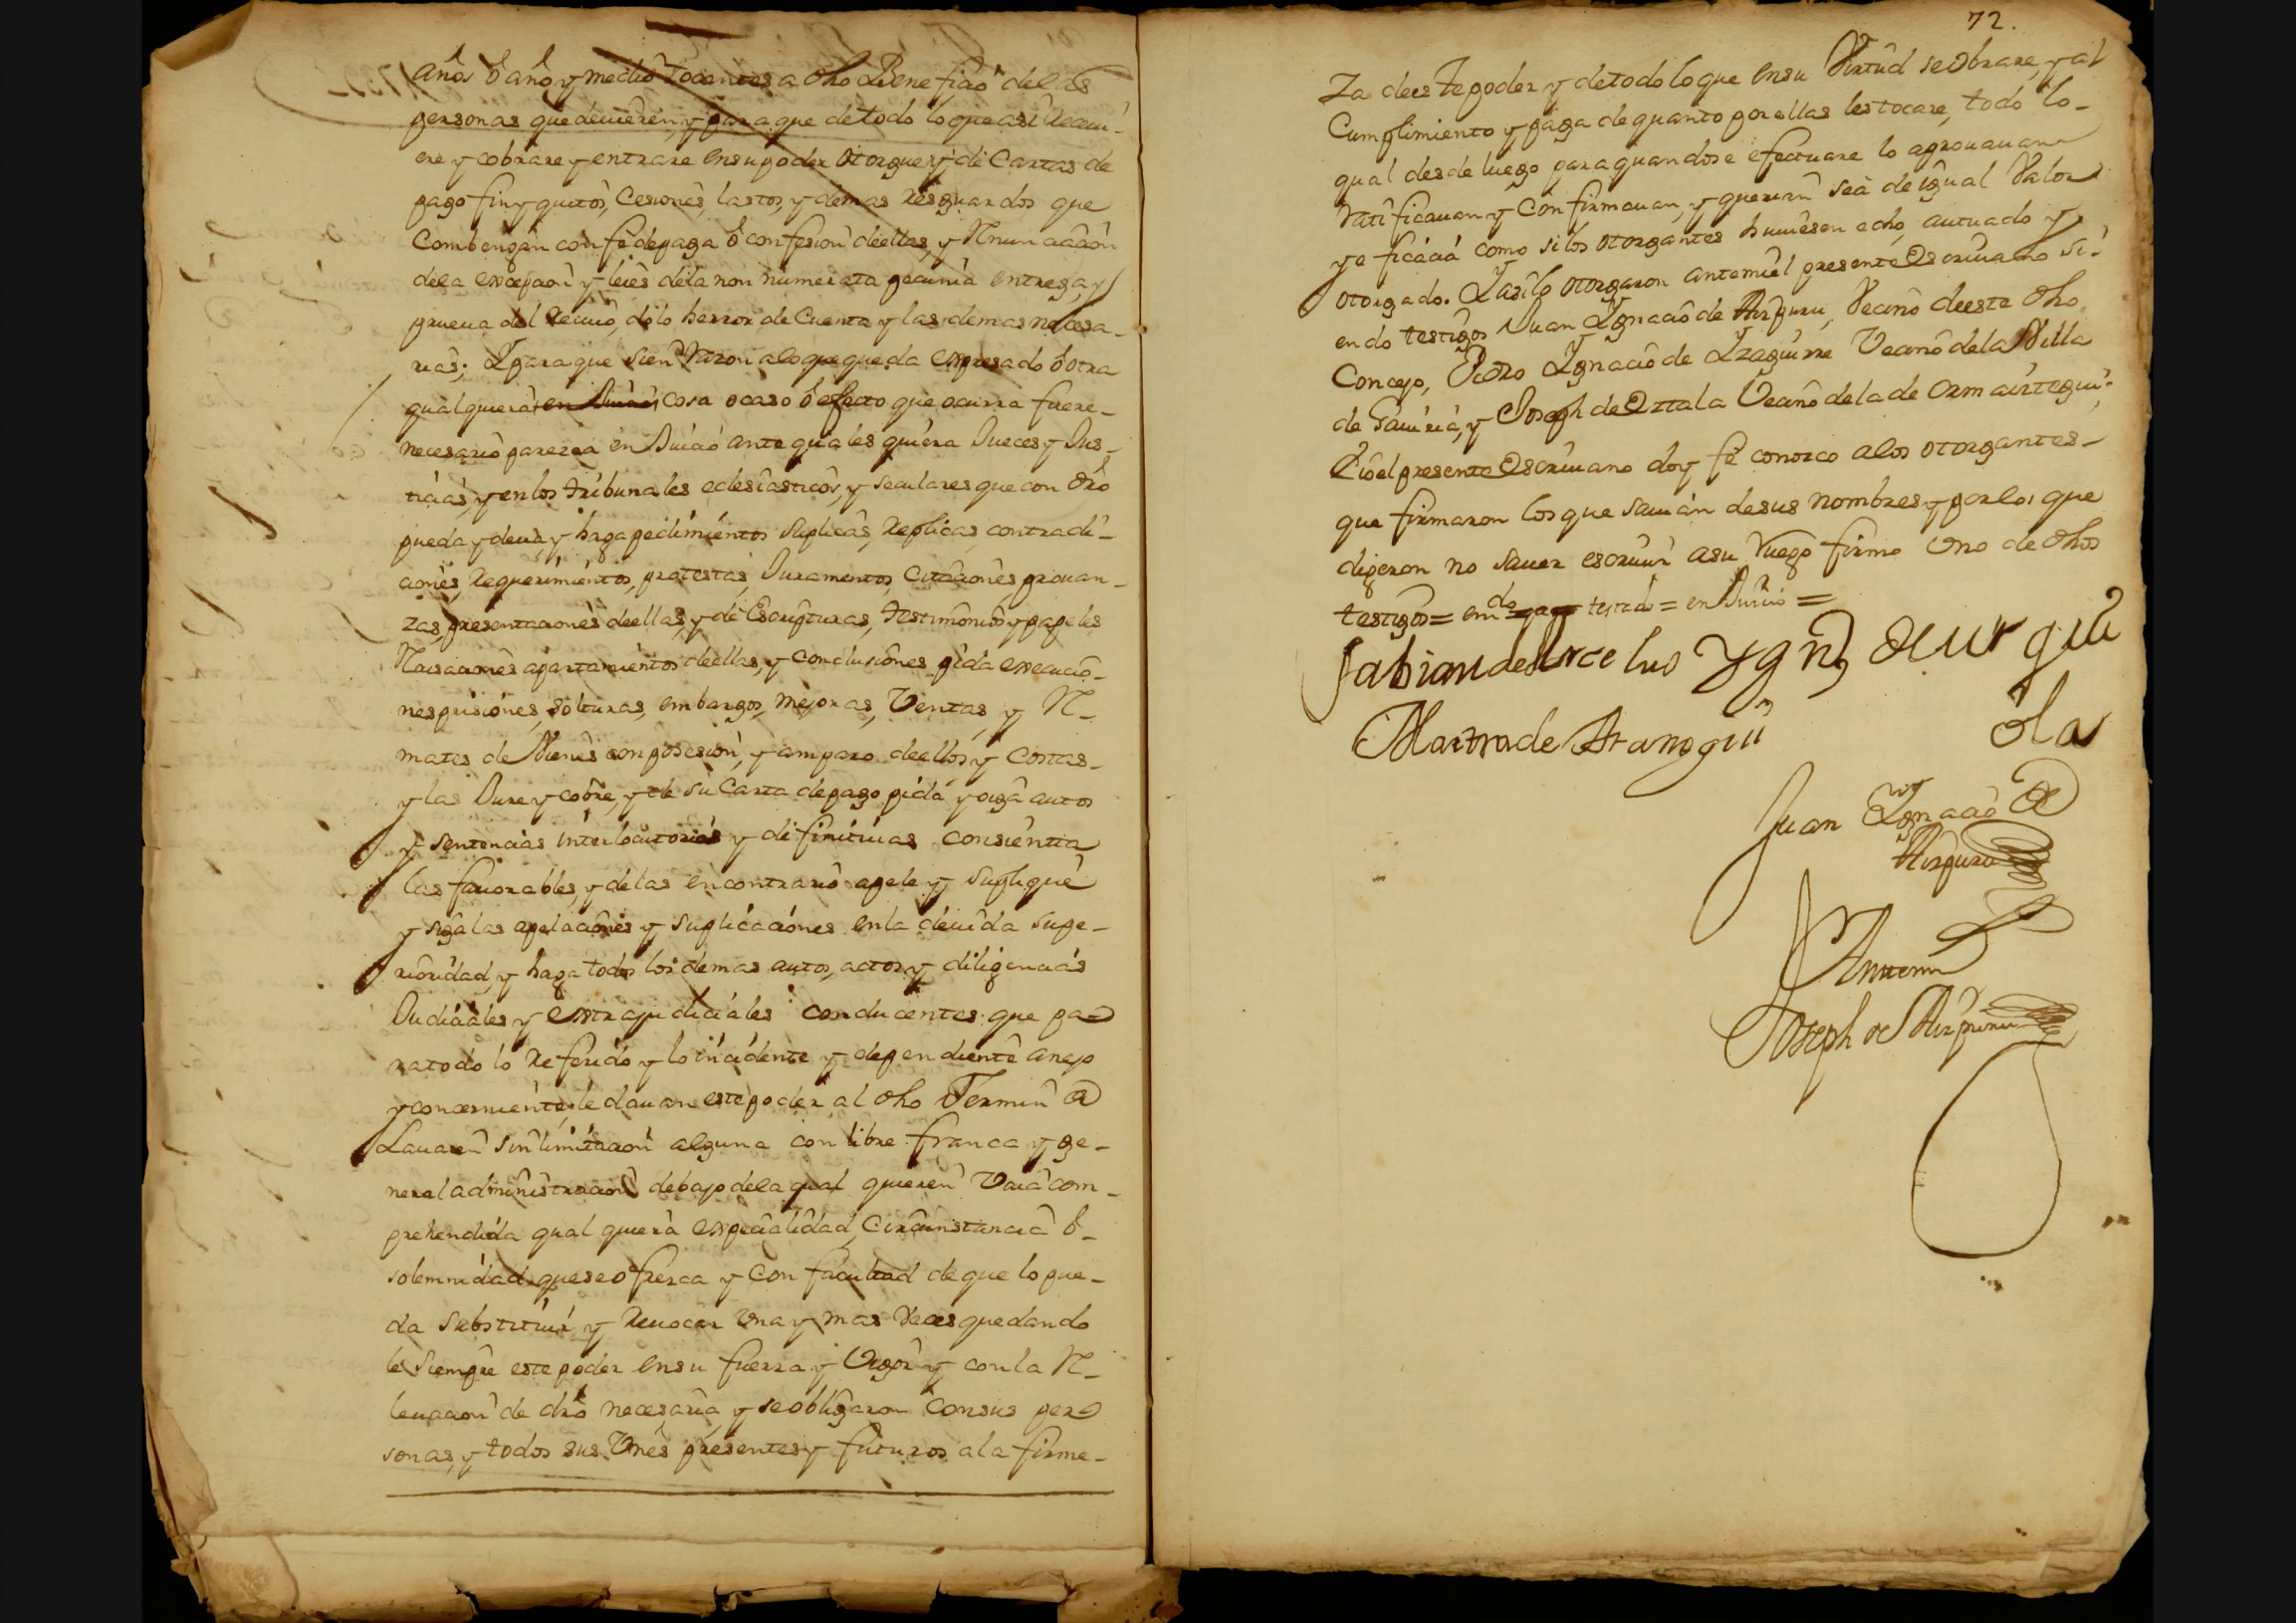 años ó año y medio tocantes a dho Benefiçio de las
personas que devieren, y para que de todo lo que asi Recivi-
ere y cobrare y entrare en su poder otorgue y de Cartas de
pago finyquitos, Cesiones, lastos, y demas Resguardos que
Combengan con fe de paga ó confesion de ellas, y Renunciacion
de la excepcion y leies de la non numerata pecunia entrega, y
prueva del Recivo, dolo herror de Cuenta y las demas necesa-
rias; Y para que sien Razon a lo que queda expresado ó otra
qualquiera en Juicio, cosa o caso ó efecto que ocurra fuere-
necesario parezca en Juicio ante quales quiera Jueces y Jus-
ticias, y en los tribunales eclesiasticos, y seculares que con dro
pueda y deva, y haga pedimientos suplicas, Replicas, contradi-
ciones, Requerimientos, protestas, Juramentos, Citaciones, provan-
zas, presentaciones de ellas, y de Escripturas, testimonios y papeles
Recusaciones apartamientos de ellas, y conclusiones pida execucio-
nes prisiones, solturas, embargos, mejoras, Ventas, y Re-
mates de Vienes con posesion, y amparo de ellos y costas-
y las Jure y cobre, y de su Carta de pago pida y oiga autos
y sentencias interlocutorias y difinitivas consienta
las favorables, y de las en contrario apele y suplique
y siga las apelaciones y suplicaciones en la devida supe-
rioridad, y haga todos los demas autos, actos y diligencias
Judiciales y extrajudiciales conducentes que pa-
ra todo lo Referido y lo incidente y dependiente anejo
y concerniente, le davan este poder al dho Fermin de
Lavaren sin limitacion alguna con libre franca y ge-
neral administracion debajo de la qual quieren Vaia com-
prehendida qual quiera expecialidad, Circunstancia ó-
solemnidad que se ofrezca y con facultad de que lo pue-
da substituir y Revocar Una y mas Veces quedando
le siempre este poder en su fuerza y Vigor y con la Re-
levacion de dro necesaria, y se obligaron con sus per-
sonas, y todos sus Vnes presentes y futuros a la firme-
72.
za de este poder y de todo lo que en su Virtud se obrare, y al
Cumplimiento y paga de quanto por ellas les tocare, todo lo-
qual desde luego para quando se efectuare lo aprovavan
Ratificavan y Confirmavan, y querian sea de igual Valor
y eficacia como si los otorgantes huviesen echo, autuado y
otorgado. Y asi lo otorgaron ante mi el presente Escrivano si-
endo testigos Juan Ygnacio de Aizpuru, Vecino de este dho
Concejo, Pedro Ygnacio de Yzaguirre Vecino de la Villa
de Gaviria, y Joseph de Oztala Vecino de la de Ormaiztegui;
E io el presente Escrivano doy fe conozco a los otorgantes-
que firmaron los que savian de sus nombres y por los que
digeron no saver escrivir a su Ruego firmo Uno de dhos
testigos = emdo = pag = testado = en Juicio =
Fabian de Urcelus Ygno de Urquiola
Martin de Aranegui
tgo
Juan Ygnacio de
Aizpuru
Ante mi
Joseph de Aizpuru